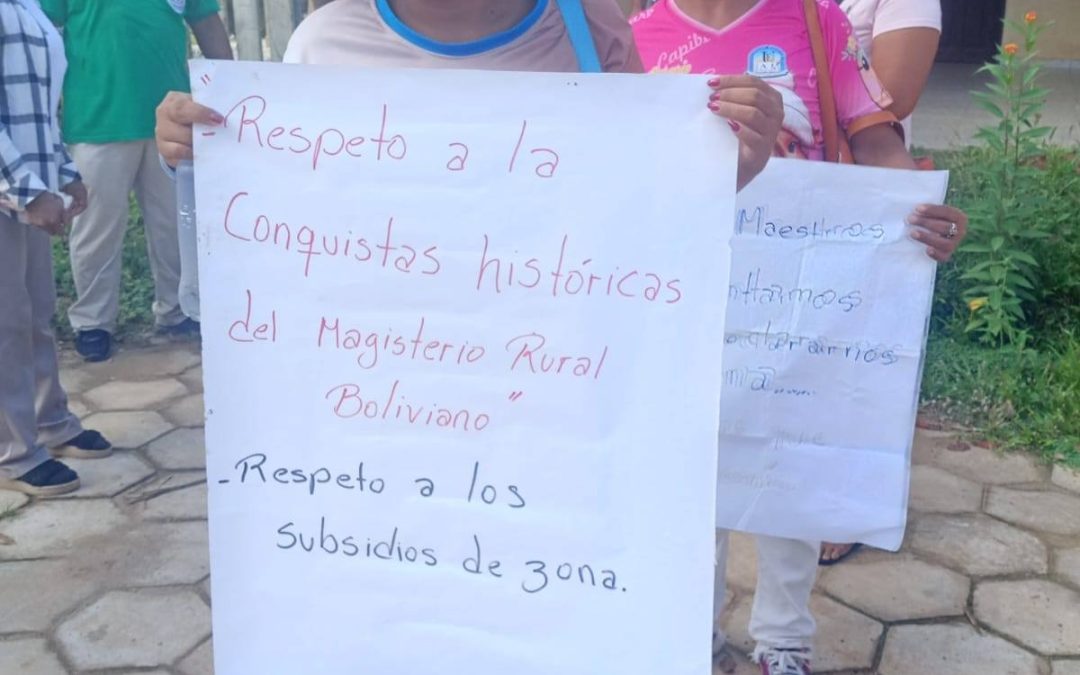 "
- Respeto a la
Conquistas históricas
del Magisterio Rural
Boliviano"
- Respeto a los
subsidios de zona.
Maestros
Capib